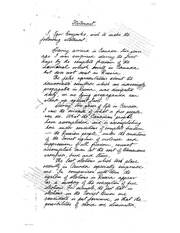 Statement
I, Igor Gouzenko, wish to make the
following statement:
Having arrived in Canada two years
ago, I was surprised during the first
days by the complete freedom of the
individual which exists in Canada
but does not exist in Russia.
The false representations about the
democratic countries which are increasingly
propagated in Russia was dissipated
daily, as no lying propaganda can
stand up against facts.
During two years of life in Canada
I saw the evidence of what a free people
can do. What the Canadian people
have accomplished and is accomplishing
here under conditions of complete freedom
the Russian people, under the conditions
of the Soviet regime of violence and
suppression of all freedom, cannot
accomplish even at the cost of tremendous
sacrifices, blood and tears.
The last elections which took place
recently in Canada especially surprised
me. In comparison with them the
system of elections in Russia appear
as a mockery of the conception of free
elections. For example, the fact that in
elections in the Soviet Union one
candidate is put forward, so that the
possibilities of choice are eliminated